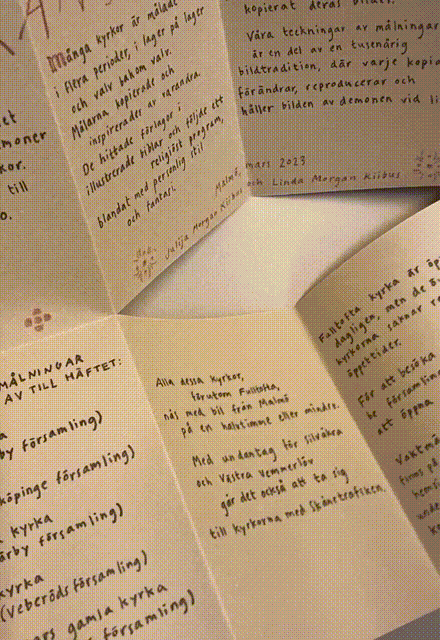 Många kyrkor är målade
i flera perioder, i lager på lager
och valv bakom valv.
Målarna kopierade och
inspirerades av varandra.
De hittade förlagor i
illustrerade biblar och följde ett
religiöst program,
blandat med personlig stil
och fantasi.
kopierat deras bilder.
Våra teckningar av målningar
är en del av en tusenårig
bildtradition, där varje kopia
förändrar, reproducerar och
håller bilden av demonen vid li
Malmö, mars 2023
Julija Morgan Kiibus och Linda Morgan Kiibus
et
moner
kor.
till
o.
MÅLNINGAR
AV TILL HÄFTET:
a
by församling)
köpinge församling)
kyrka
ärby församling)
kyrka
(Veberöds församling)
ars gamla kyrka
s församling)
Alla dessa kyrkor,
förutom Fulltofta,
nås med bil från Malmö
på en halvtimme eller mindre.
Med undantag för Silvåkra
och Västra Vemmerlöv
går det också att ta sig
till kyrkorna med Skånetrafiken.
Fulltofta kyrka är öp
dagligen, men de ö
kyrkorna saknar r
öppettider.
För att besöka
be församlin
att öppna
Vaktmä
finns på
hemsi
unde